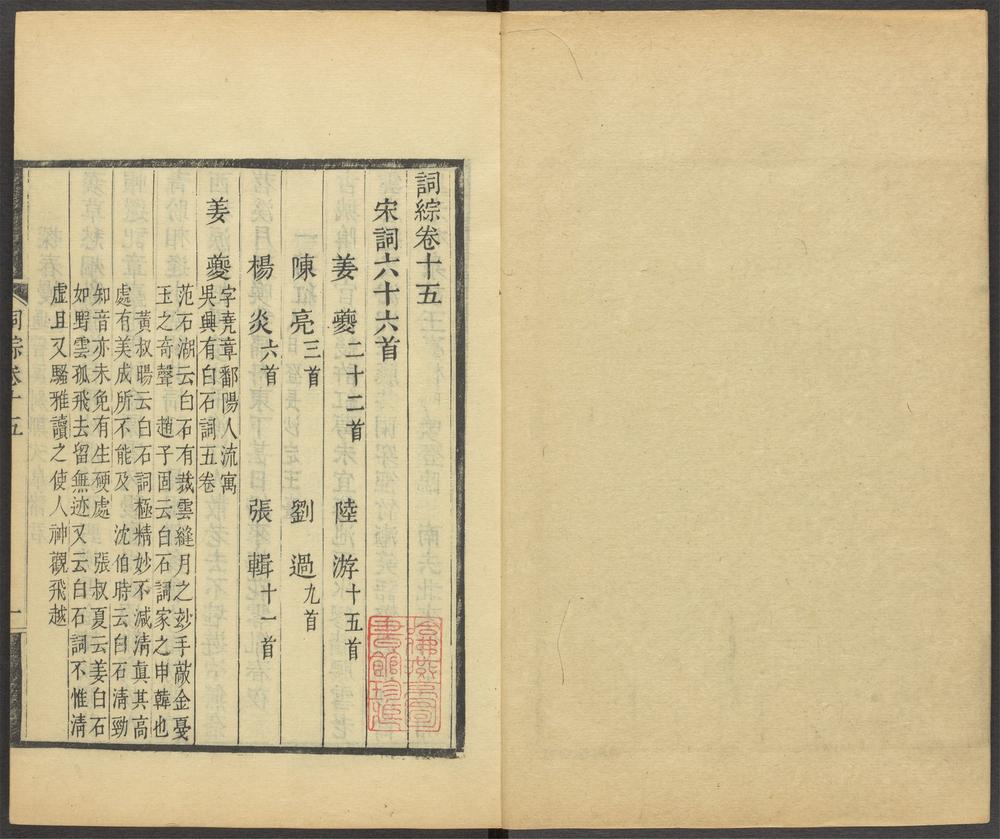 詞綜卷十五
宋詞六十六首
姜夔二十二首 陸游十五首
陳亮三首 劉過九首
楊炎六首 張輯十一首
姜夔字堯章鄱陽人流寓
吳興有白石詞五卷
范石湖云白石有裁雲縫月之玅手敲金戛
玉之奇聲 趙子固云白石詞家之申韓也
黃叔暘云白石詞極精妙不減清真其高
處有美成所不能及 沈伯時云白石清勁
知音亦未免有生硬處 張叔夏云姜白石
如野雲孤飛去留無迹又云白石詞不惟清
虛且又騷雅讀之使人神觀飛越
詞綜卷十五
一
哈佛燕京圖書館珍藏